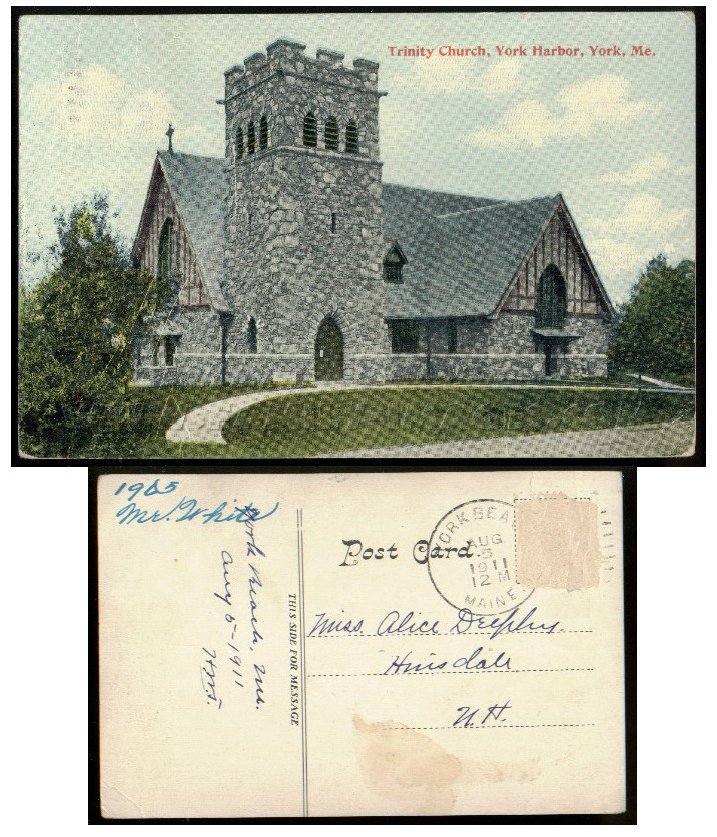 Trinity Church, York Harbor, York, Me.
1905
Mr. White
York Beach, Me.
Aug 5-1911
Post Card.
YORK BEA
AUG
5
1911
12 M
MAINE.
THIS SIDE FOR MESSAGE
Miss Alice
Hinsdale
N.H.